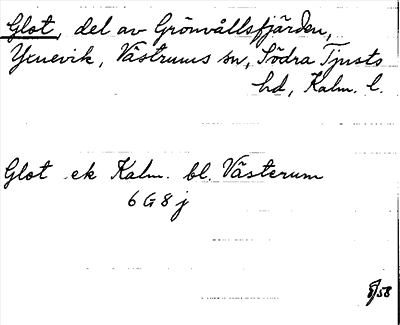 Glot, del av Grönvållsfjärden,
Yxnevik, Västrums sn, Södra Tjusts
hd, Kalm. l.
Glot ek Kalm. bl. Västerum
6 G 8 j
8/58